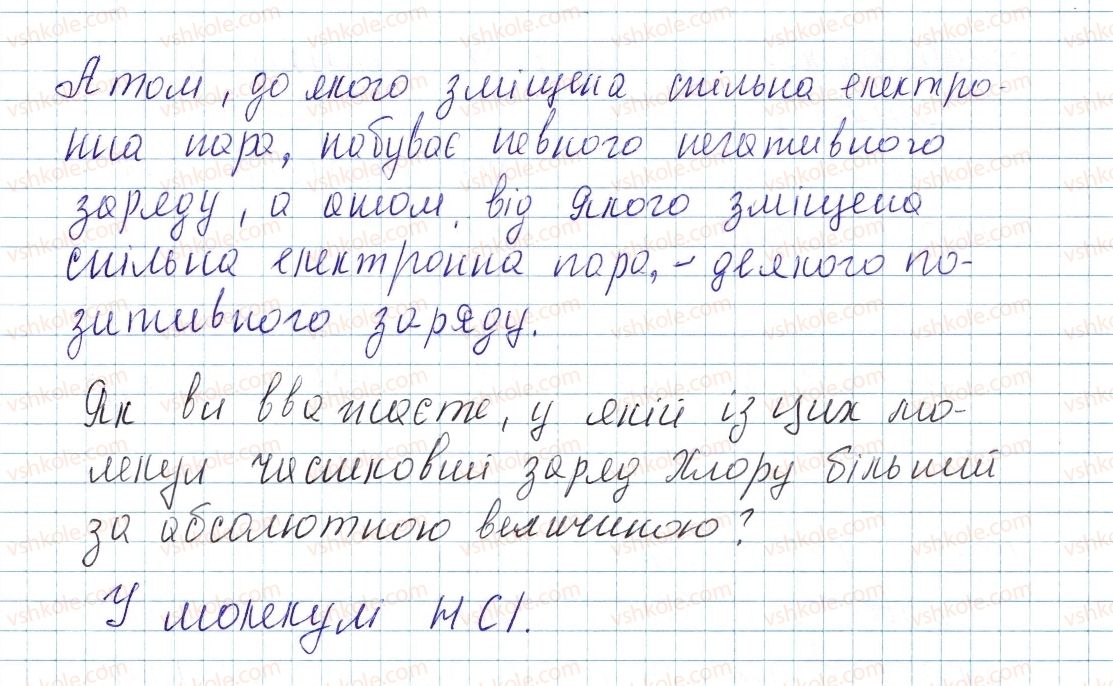 Атом, до якого зміщена спільна електро-
нна пара, набуває певного негативного
заряду, а атом, від якого зміщена
спільна електронна пара, - деякого по-
зитивного заряду.
Як ви вважаєте, у якій із цих мо-
лекул частковий заряд Хлору більший
за абсолютною величиною?
У молекулі HCl.